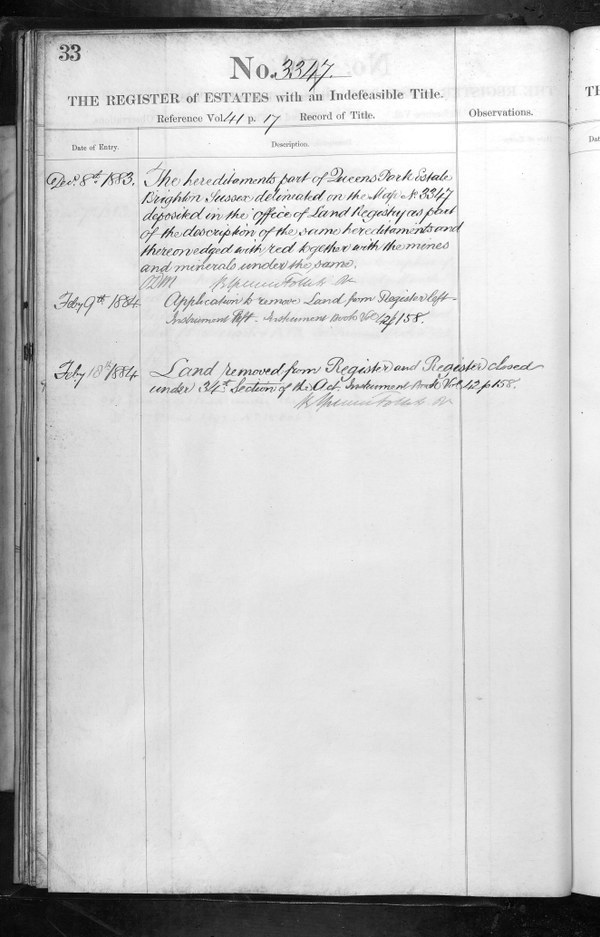 33
No. 3347.
THE REGISTER of ESTATES with an Indefeasible Title.
Reference Vol. 41 p. 17 Record of Title.
Observations.
Date of Entry.
Description.
Decr. 8th 1883. The hereditaments part of Queens Park Estate
Brighton Sussex deliniated on the Map No. 3347
deposited in the Office of Land Registry as part
of the description of the same hereditaments and
thereon edged with red together with the mines
and minerals under the same.
Feby 9th 1884 Application to remove Land from Register left
Instrument left. Instrument Book Vol. 42 p 158.
Feby 18th 1884 Land removed from Register and Register closed
under 34th Section of the Act, Instrument Book Vol. 42 p 158.
TH
Da